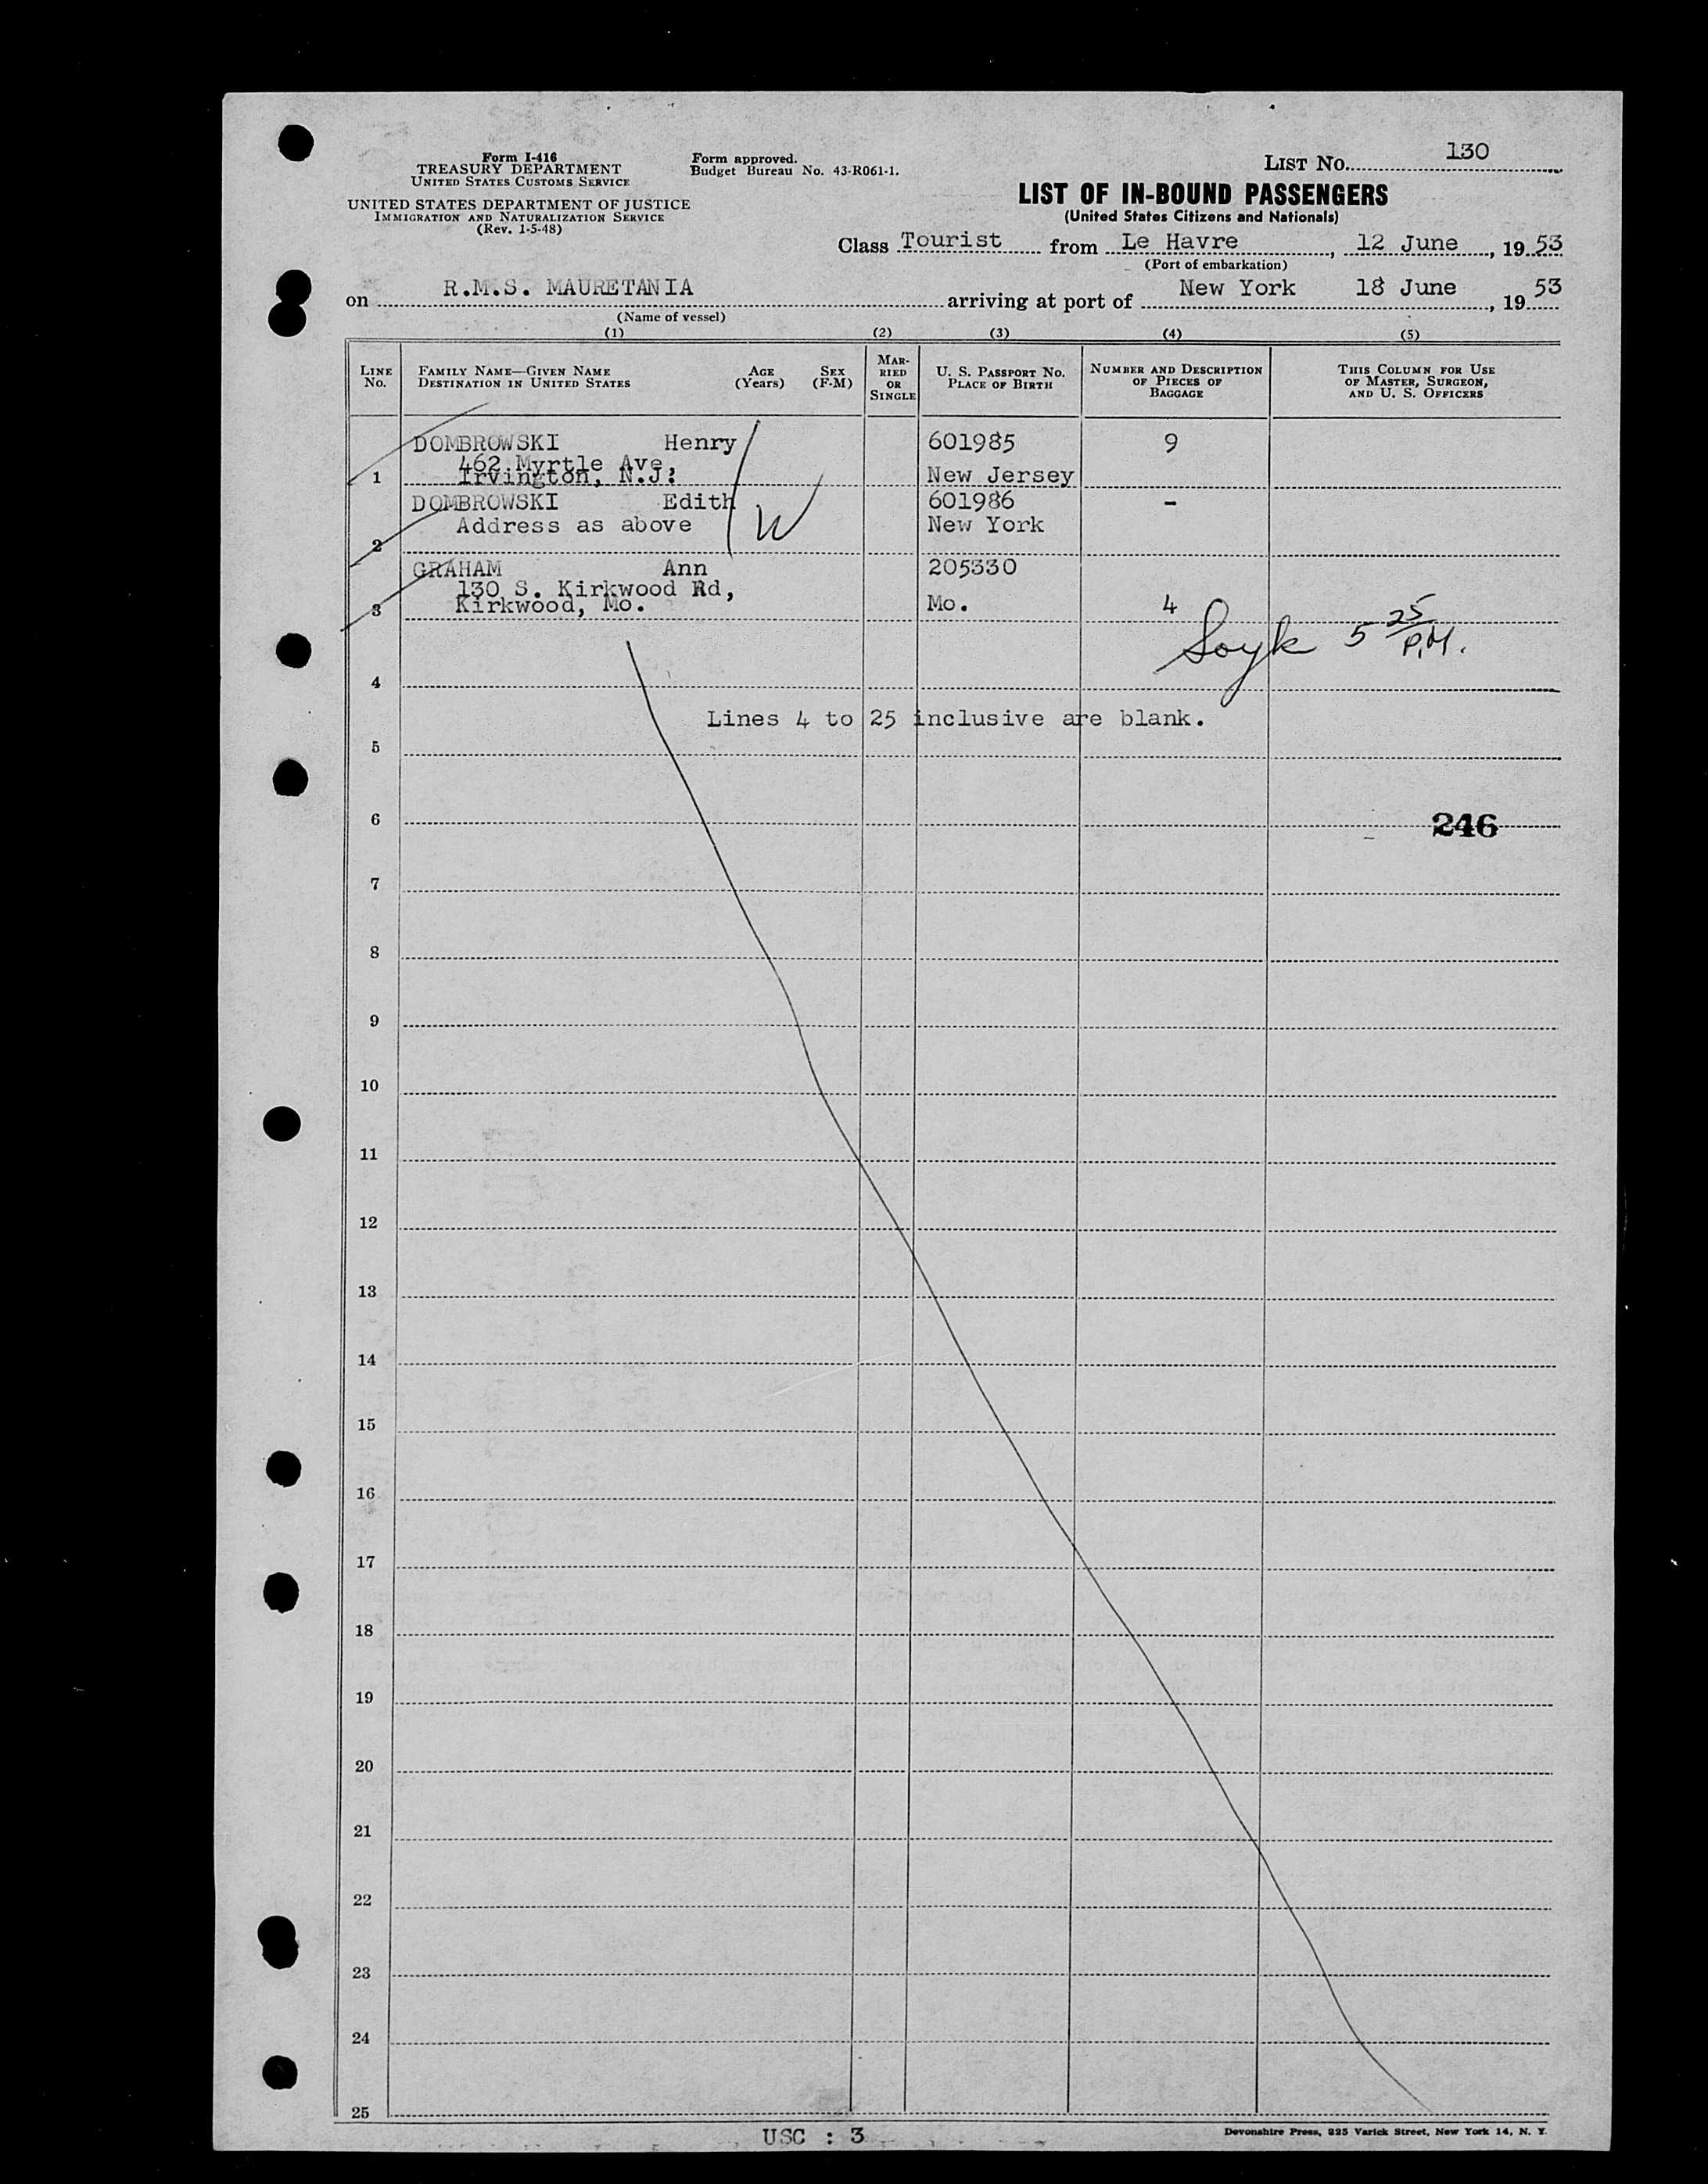 Form I-416
TREASURY DEPARTMENT
UNITED STATES CUSTOMS SERVICE
UNITED STATES DEPARTMENT OF JUSTICE
IMMIGRATION AND NATURALIZATION SERVICE
(Rev. 1-5-48)
Form approved.
Budget Bureau No. 43-R061-1.
LIST No. 130
LIST OF IN-BOUND PASSENGERS
(United States Citizens and Nationals)
Class Tourist from Le Havre, 12 June, 1953
(Port of embarkation)
on R.M.S. MAURETANIA arriving at port of New York 18 June, 1953
(Name of vessel)
(1) (2) (3) (4) (5)
LINE No.
FAMILY NAME—GIVEN NAME
DESTINATION IN UNITED STATES
AGE (Years)
SEX (F-M)
MARRIED OR SINGLE
U. S. PASSPORT NO.
PLACE OF BIRTH
NUMBER AND DESCRIPTION OF PIECES OF BAGGAGE
THIS COLUMN FOR USE OF MASTER, SURGEON, AND U. S. OFFICERS
DOMBROWSKI Henry 601985 9
462 Myrtle Ave,
1 Irvington, N.J. New Jersey
DOMBROWSKI Edith 601986 -
Address as above W New York
2
GRAHAM Ann 205330
130 S. Kirkwood Rd,
3 Kirkwood, Mo. Mo. 4
Soyk 5 25 P.M.
4
Lines 4 to 25 inclusive are blank.
5
6 246
7
8
9
10
11
12
13
14
15
16
17
18
19
20
21
22
23
24
25
USC : 3
Devonshire Press, 225 Varick Street, New York 14, N. Y.